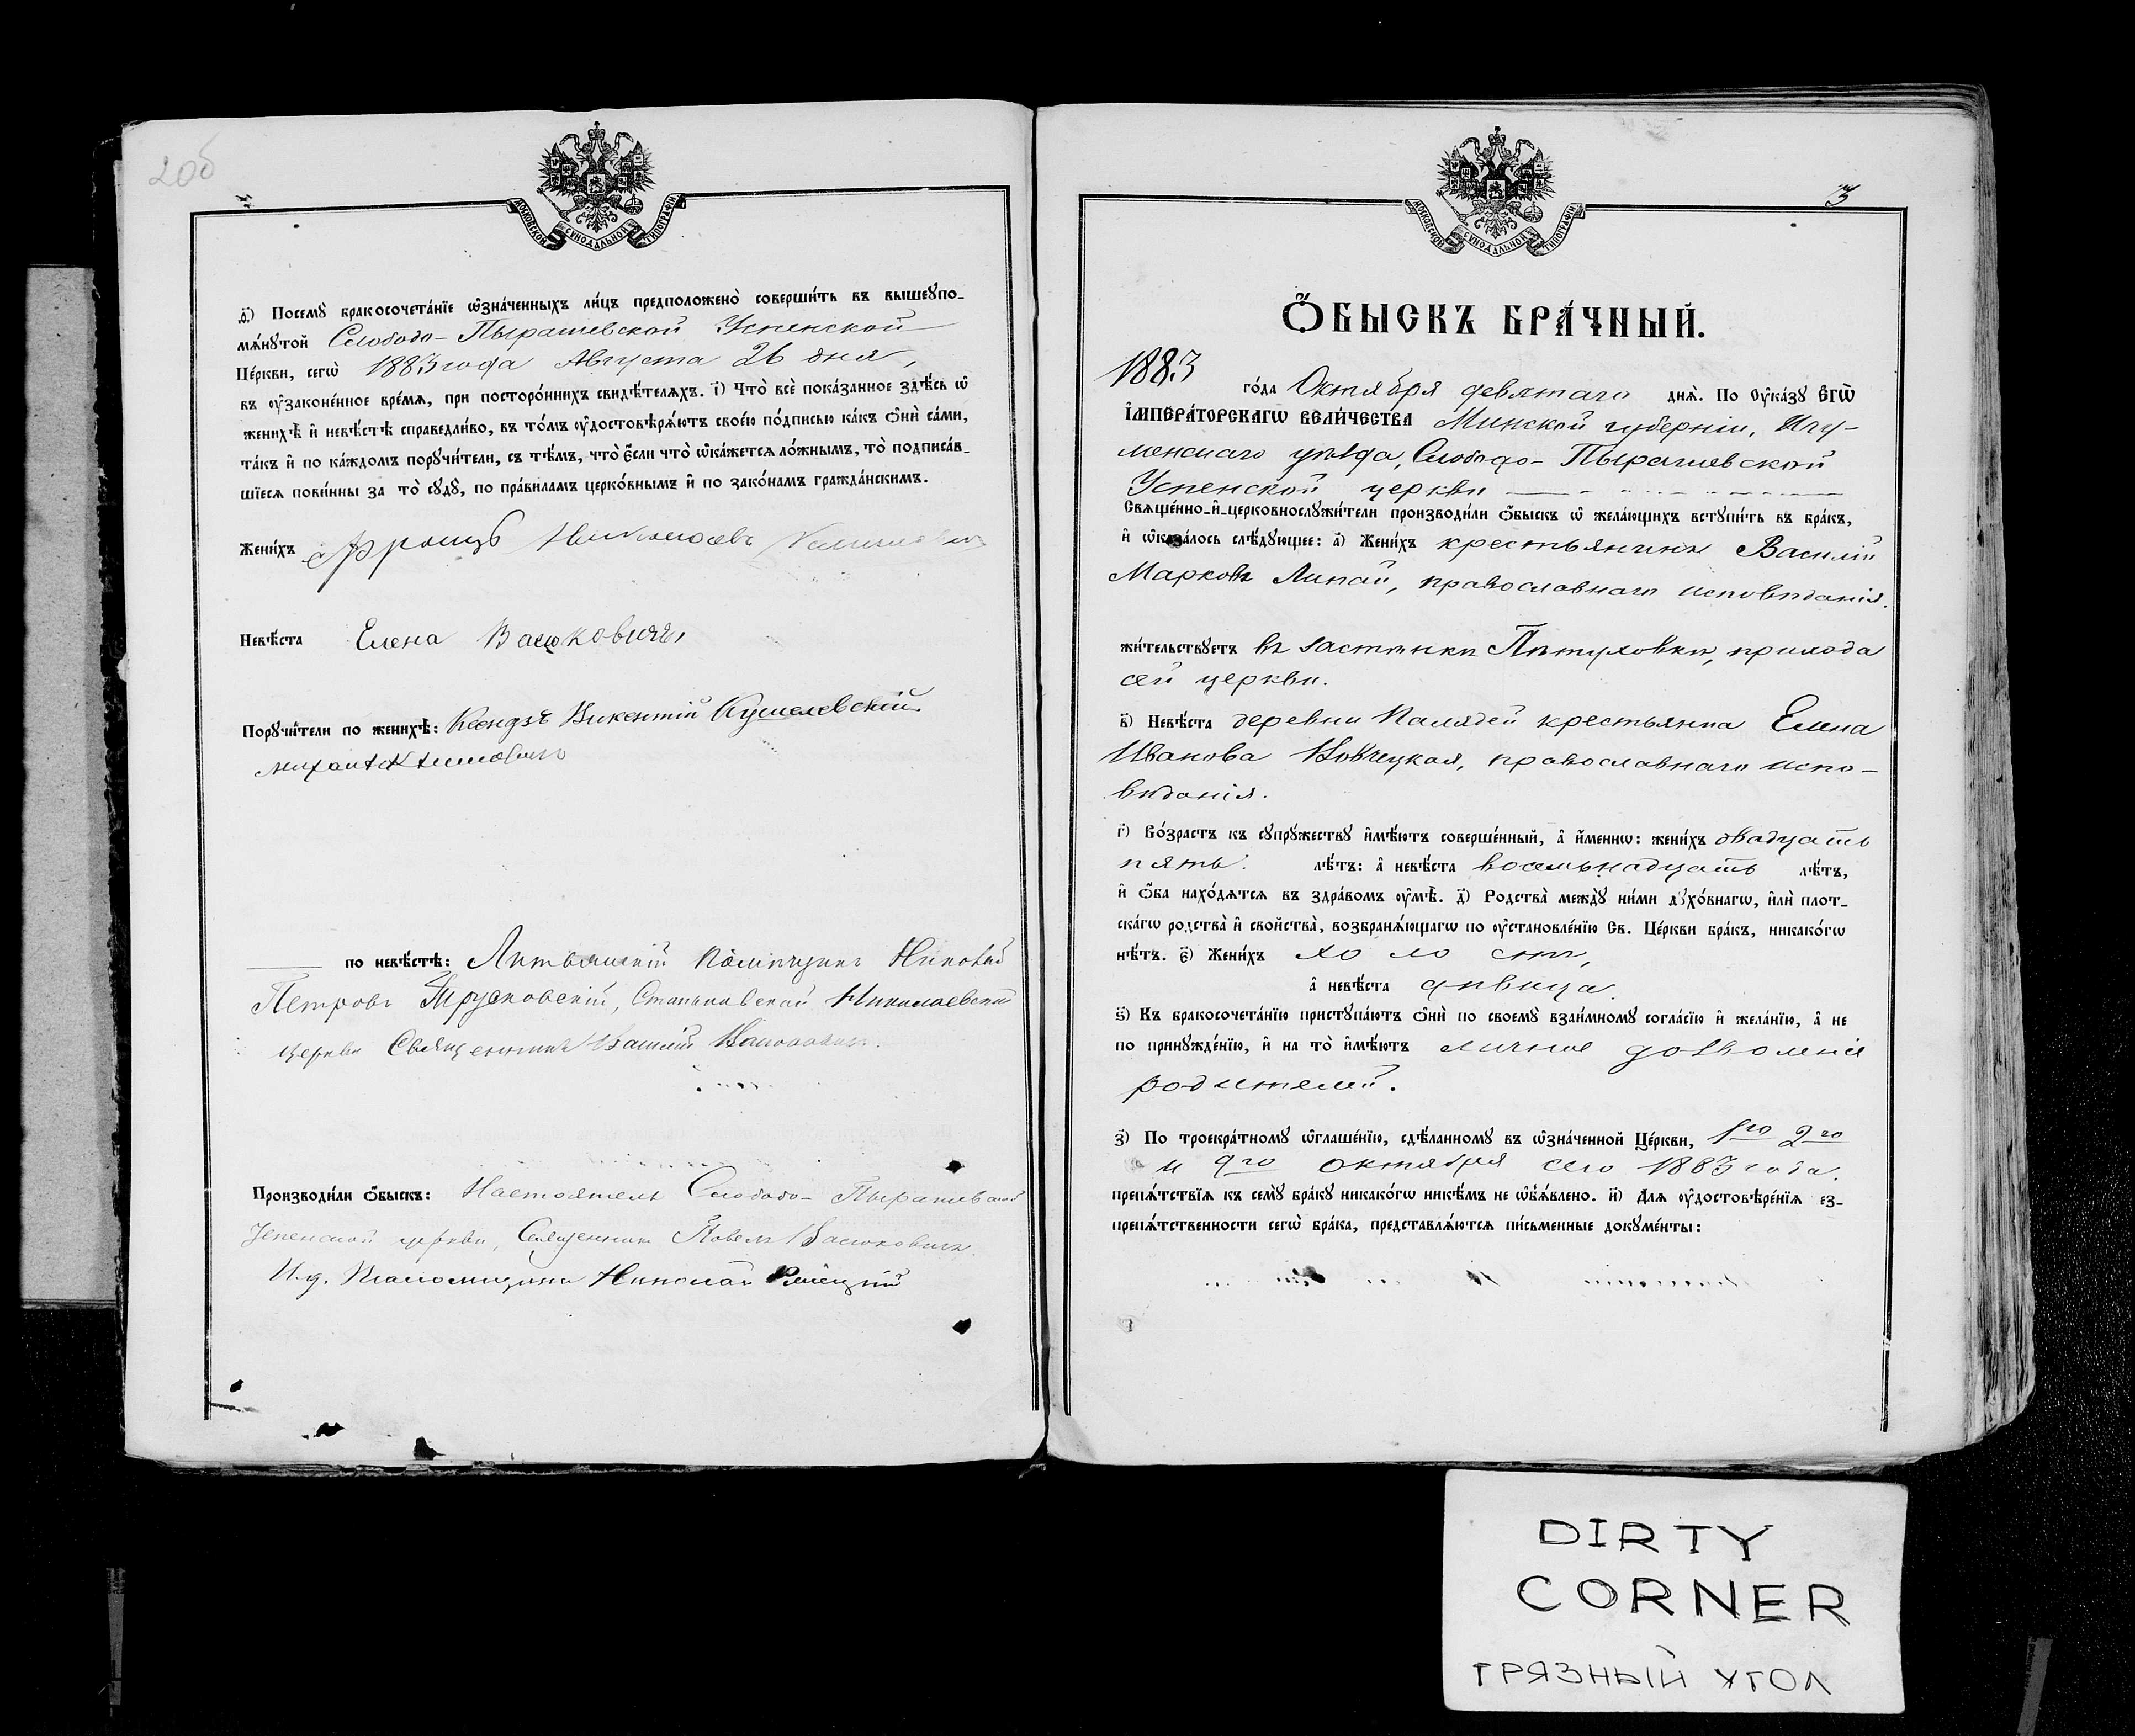 20б
МОСКОВСКОЙ СѴНОДАЛЬНОЙ ТИПОГРАФІИ
ѳ҃) Посемꙋ̀ бракосочета́нїе ѡ҆зна́ченныхъ ли́цъ предположено̀ соверши́ть въ вышеꙋпо-
мѧ́нꙋтой Слободо-Пырашевской Успенской
Це́ркви, сегѡ̀ 1883 года Августа 26 дня,
въ ᲂу҆зако́ненное вре́мѧ, при посторо́ннихъ свидѣ́телѧхъ. і҃) Что̀ всѐ пока́занное здѣ́сь ѡ҆
женихѣ̀ и҆ невѣ́стѣ справедли́во, въ то́мъ ᲂу҆достовѣрѧ́ютъ свое́ю по́дписью ка́къ ѻ҆нѝ са́ми,
та́къ и҆ по ка́ждомъ порꙋчи́тели, съ тѣ́мъ, что̀ є҆́сли что̀ ѡ҆ка́жетсѧ ло́жнымъ, то̀ подписа́в-
шїесѧ пови́нны за то̀ сꙋдꙋ̀, по пра́виламъ церко́внымъ и҆ по зако́намъ гражда́нскимъ.
Жени́хъ Францъ
Невѣ́ста Елена Васюковичъ
Порꙋчи́тели по женихѣ̀: Ксендзъ Викентій
по невѣ́стѣ:
Петровъ Трусковскій, Станьковской Николаевской
церкви Священникъ Василій
Производи́ли ѻ҆́быскъ: Настоятель Слободо-Пырашевской
Успенской церкви, Священникъ Павелъ Васюковичъ.
И. д. Псаломщика Николай
МОСКОВСКОЙ СѴНОДАЛЬНОЙ ТИПОГРАФІИ
3
Ѻ҆́БЫСКЪ БРА́ЧНЫЙ.
1883 го́да Октября девятаго днѧ̀. По ᲂу҆ка́зꙋ Є҆ГѠ̀
І҆МПЕРА́ТОРСКАГѠ ВЕЛИ́ЧЕСТВА Минской губерніи, Игу-
менскаго уѣзда, Слободо-Пырашевской
Успенской церкви
Свѧще́нно-и҆-церковнослꙋжи́тели производи́ли ѻ҆́быскъ ѡ҆ жела́ющихъ встꙋпи́ть въ бра́къ,
и҆ ѡ҆каза́лось слѣ́дꙋющее: а҃) Жени́хъ крестьянинъ Василій
Марковъ Липай, православнаго исповѣданія.
жи́тельствꙋетъ въ застѣнкѣ Пѣтуховкѣ, прихода
сей церкви.
в҃) Невѣ́ста деревни Калядей крестьянка Елена
Иванова православнаго испо-
вѣданія.
г҃) Во́зрастъ къ сꙋпрꙋ́жествꙋ и҆мѣ́ютъ соверше́нный, а҆ и҆́меннѡ: жени́хъ двадцать
пять лѣ́тъ: а҆ невѣ́ста восемьнадцать лѣ́тъ,
и҆ ѻ҆́ба нахо́дѧтсѧ въ здра́вомъ ᲂу҆мѣ̀. д҃) Родства̀ междꙋ̀ ни́ми дꙋхо́внагѡ, и҆лѝ плот-
ска́гѡ родства̀ и҆ свойства̀, возбранѧ́ющагѡ по ᲂу҆становле́нїю Св. Це́ркви бра́къ, никако́гѡ
нѣ́тъ. є҃) Жени́хъ холостъ,
а҆ невѣ́ста дѣвица.
ѕ҃) Къ бракосочета́нїю пристꙋпа́ютъ ѻ҆нѝ по своемꙋ̀ взаи́мномꙋ согла́сїю и҆ жела́нїю, а҆ не
по принꙋжде́нїю, и҆ на то̀ и҆мѣ́ютъ личное дозволеніе
родителей.
з҃) По троекра́тномꙋ ѡ҆глаше́нїю, сдѣ́ланномꙋ въ ѡ҆зна́ченной Це́ркви, 1го 2го
и 9го октября сего 1883 года.
препѧ́тствїѧ къ семꙋ̀ бра́кꙋ никако́гѡ никѣ́мъ не ѡ҆б̾ѧ́влено. и҃) Длѧ ᲂу҆достовѣре́нїѧ ез-
препѧ́тственности сегѡ̀ бра́ка, представлѧ́ютсѧ пи́сьменные докꙋме́нты:
DIRTY
CORNER
ГРЯЗНЫЙ УГОЛ